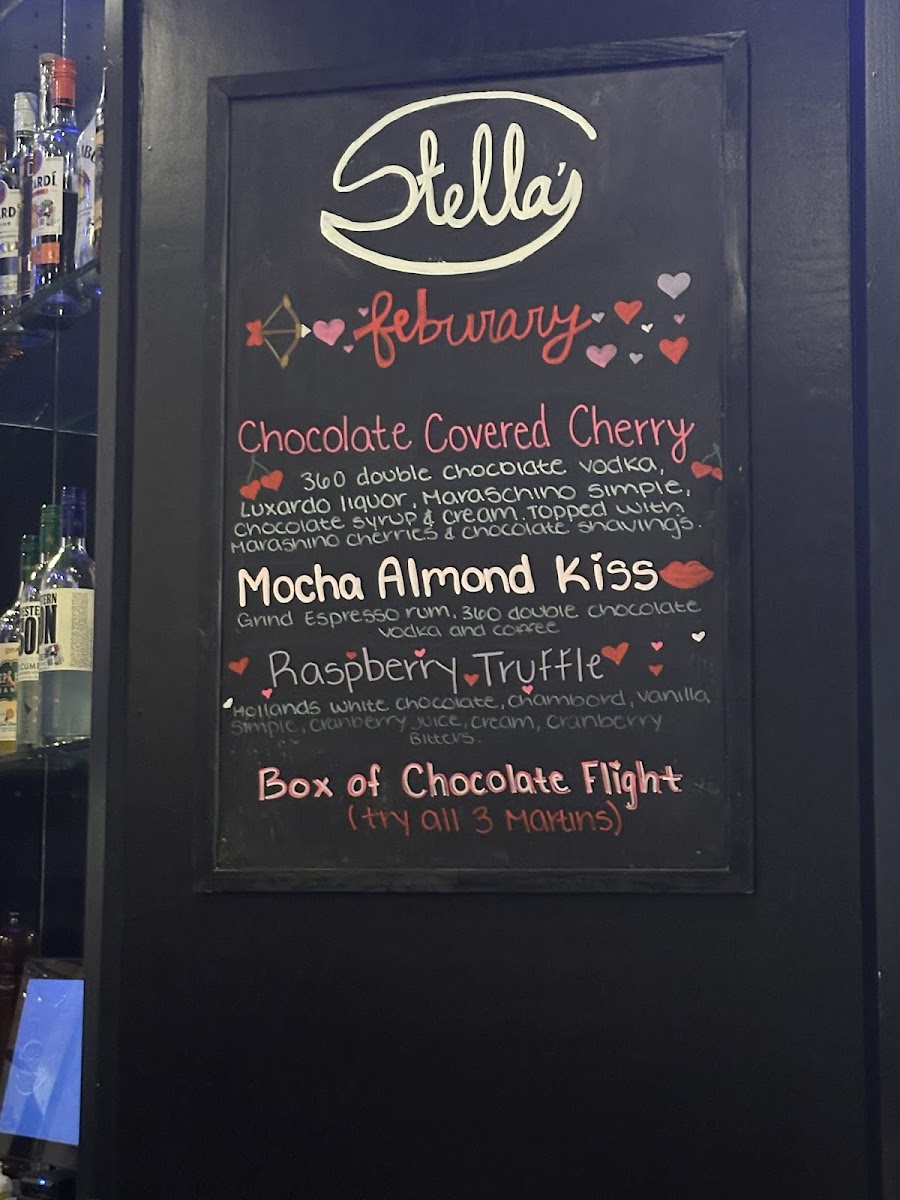 Stella's
feburary
Chocolate Covered Cherry
360 double chocolate vodka,
Luxardo liquor, Maraschino simple,
Chocolate syrup & cream. Topped with
Marashino cherries & chocolate shavings.
Mocha Almond Kiss
Grind Espresso rum, 360 double chocolate
vodka and coffee
Raspberry Truffle
Hollands white chocolate, chambord, vanilla
simple, cranberry juice, cream, cranberry
Bitters.
Box of Chocolate Flight
(try all 3 Martins)